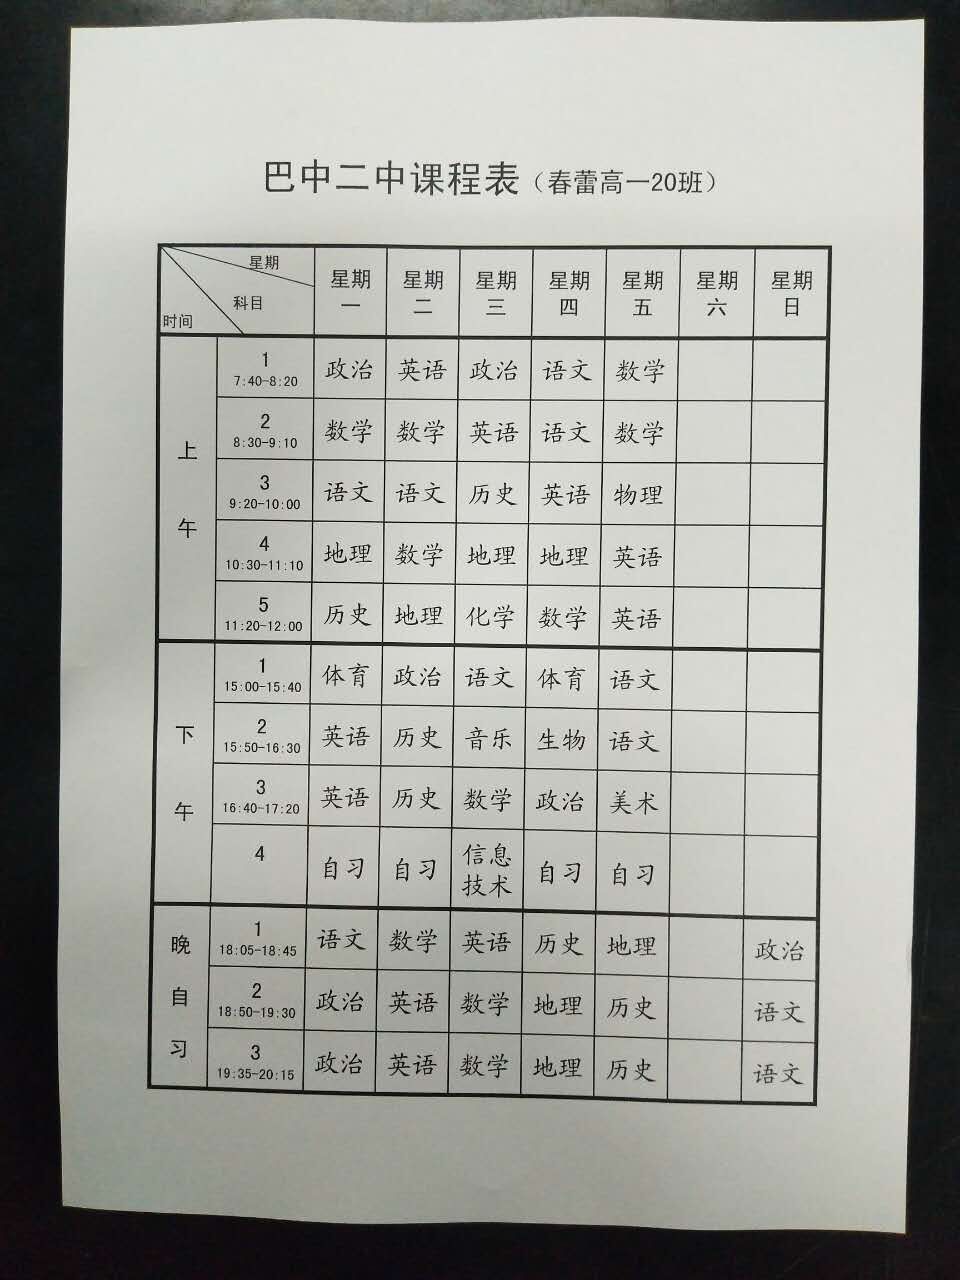 巴中二中课程表（春蕾高一20班）
星期
科目
时间
星期一 星期二 星期三 星期四 星期五 星期六 星期日
上午
1 7:40-8:20 政治 英语 政治 语文 数学
2 8:30-9:10 数学 数学 英语 语文 数学
3 9:20-10:00 语文 语文 历史 英语 物理
4 10:30-11:10 地理 数学 地理 地理 英语
5 11:20-12:00 历史 地理 化学 数学 英语
下午
1 15:00-15:40 体育 政治 语文 体育 语文
2 15:50-16:30 英语 历史 音乐 生物 语文
3 16:40-17:20 英语 历史 数学 政治 美术
4 自习 自习 信息技术 自习 自习
晚自习
1 18:05-18:45 语文 数学 英语 历史 地理 政治
2 18:50-19:30 政治 英语 数学 地理 历史 语文
3 19:35-20:15 政治 英语 数学 地理 历史 语文